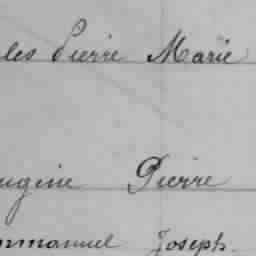 les Pierre Marie
ugène Pierre
mmanuel Joseph